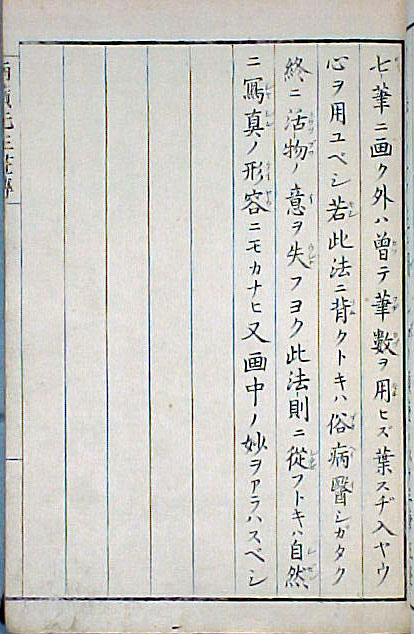 七筆ニ画ク外ハ曾テ筆数ヲ用ヒズ葉スヂ入ヤウ
心ヲ用ユベシ若此法ニ背クトキハ俗病醫シガタク
終ニ活物ノ意ヲ失フヨク此法則ニ從フトキハ自然
ニ寫真ノ形容ニモカナヒ又画中ノ妙ヲアラハスベシ